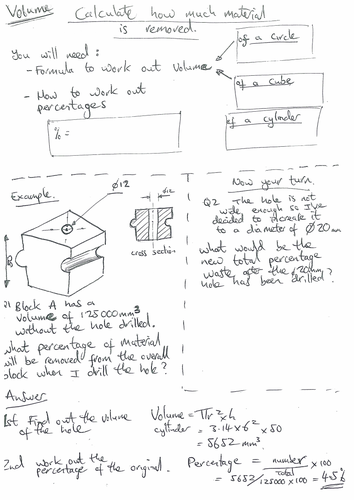 Volume
Calculate how much material
is removed.
You will need:
- Formula to work out Volume
of a circle
of a cube
of a cylinder
- How to work out
percentages
% =
Example.
Ø12
Ø12
cross section
Q1 Block A has a
volume of 125000mm³
without the hole drilled.
what percentage of material
will be removed from the overall
block when I drill the hole?
Now your turn.
Q2 The hole is not
wide enough so I've
decided to increase it
to a diameter of Ø20mm
what would be the
new total percentage
waste after the
hole has been drilled?
Answer
1st Find out the volume
of the hole
Volume = πr² × h
cylinder = 3.14 × 6² × 50
= 5652 mm³
2nd work out the
percentage of the original.
Percentage = number/total × 100
= 5652/125000 × 100 = 4.5%